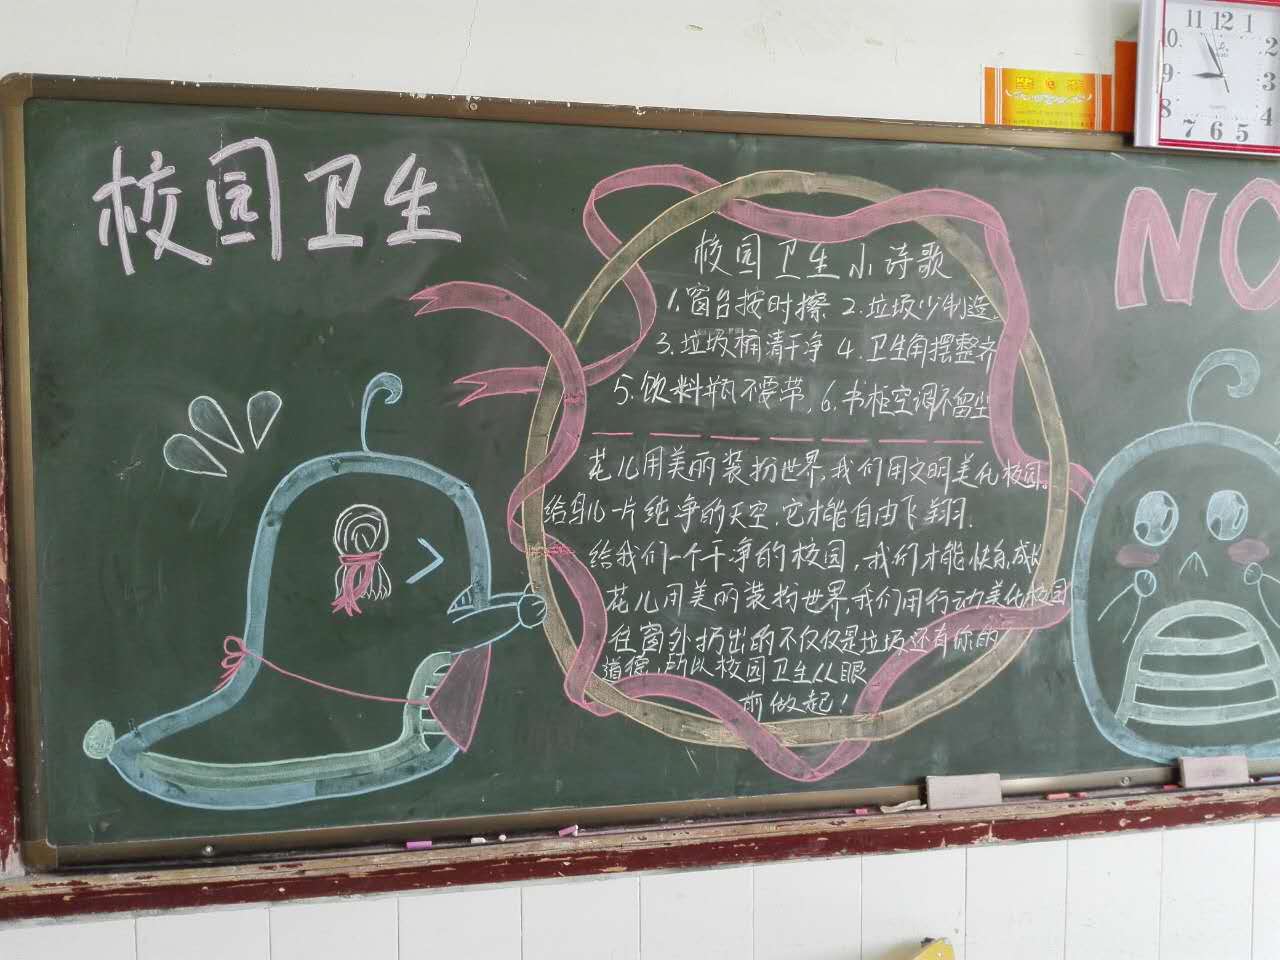 校园卫生
校园卫生小诗歌
1.窗台按时擦 2.垃圾少制造。
3.垃圾桶清干净 4.卫生角摆整齐
5.饮料瓶不要带, 6.书柜空调不留尘
花儿用美丽装扮世界,我们用文明美化校园。
给鸟儿一片纯净的天空,它才能自由飞翔.
给我们一个干净的校园,我们才能快乐成长
花儿用美丽装扮世界,我们用行动美化校园
往窗外扔出的不仅仅是垃圾还有你的
道德,所以校园卫生从眼
前做起!
NO
11 12 1
10 2
9 3
8 4
7 6 5